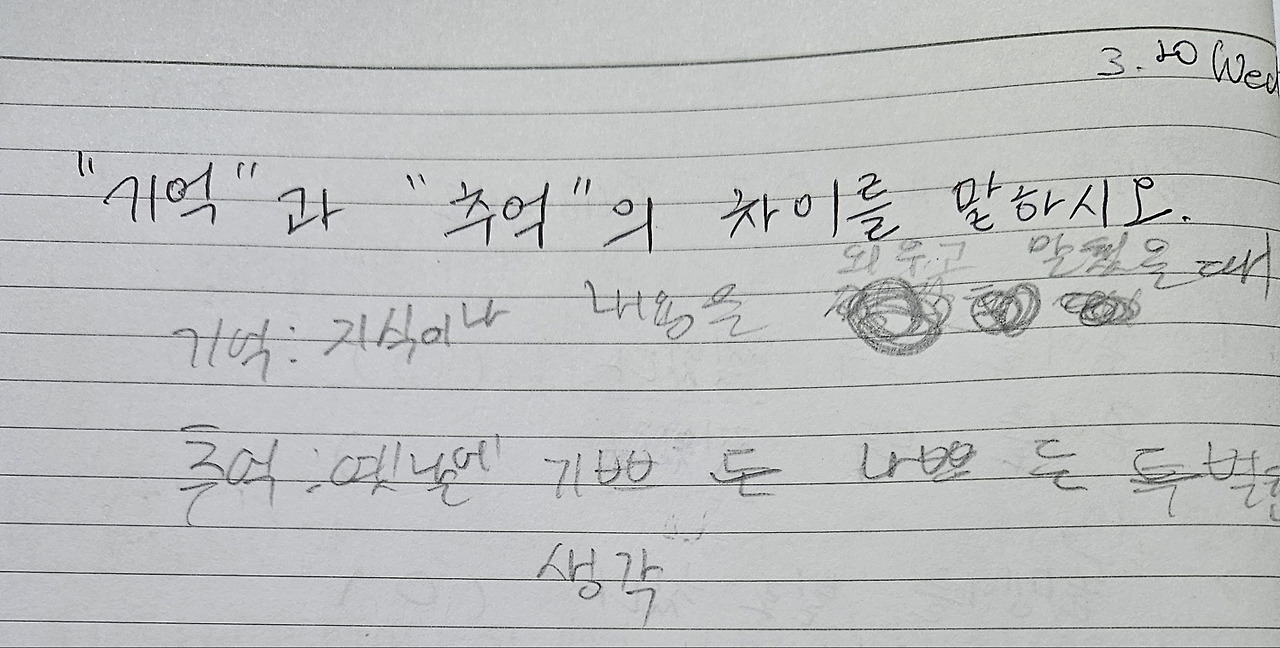 3.20 Wed
"기억"과 "추억"의 차이를 말하시오.
외우고 말했을때
기억: 지식이나 내용을
추억: 옛날에 기쁘든 나쁘든 특별한
생각